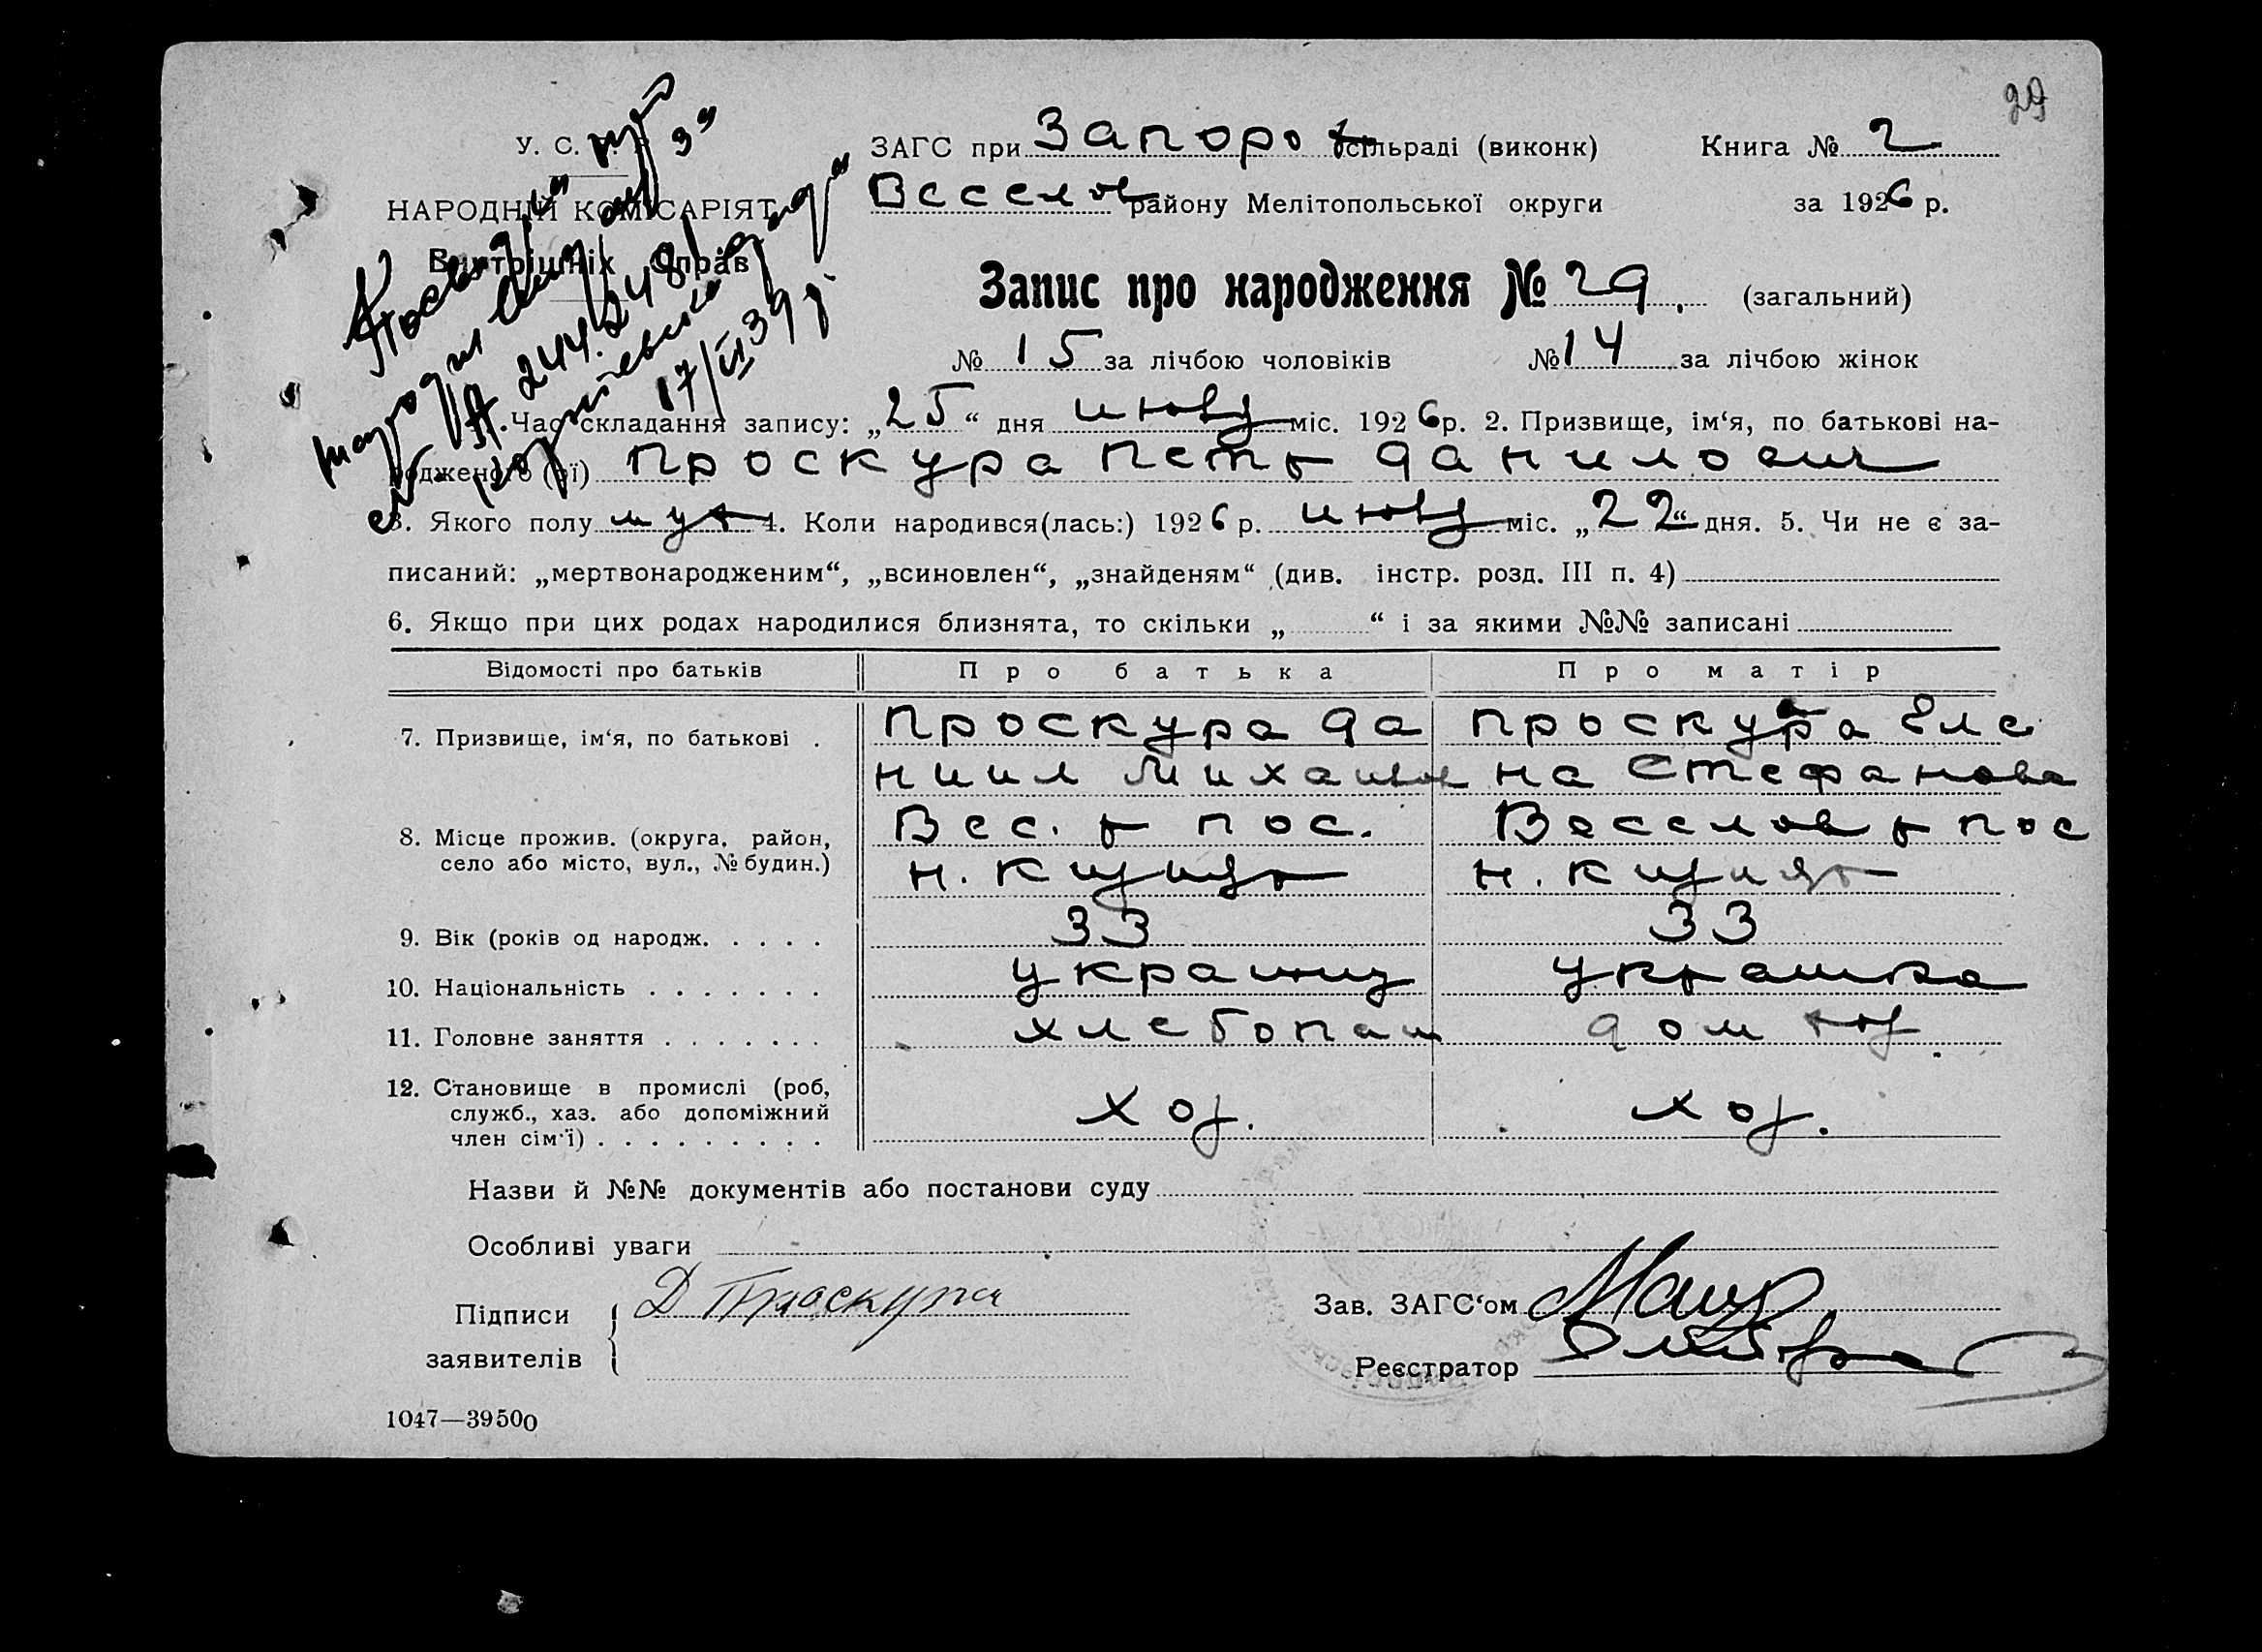 29
У. С.
ЗАГС при Запоро сільраді (виконк) Книга № 2
НАРОДНІЙ КОМІСАРІЯТ Веселов району Мелітопольської округи за 1926 р.
Внутрішніх Справ
Запис про народження № 29. (загальний)
№ 15 за лічбою чоловіків № 14 за лічбою жінок
17/VI 39
Час складання запису: „25“ дня міс. 1926 р. 2. Призвище, ім‘я, по батькові на-
родженого (ої) Проскура Петр Данилович
3. Якого полу муж 4. Коли народився(лась:) 1926 р. міс. „22“ дня. 5. Чи не є за-
писаний: „мертвонародженим“, „всиновлен“, „знайденям“ (див. інстр. розд. III п. 4)
6. Якщо при цих родах народилися близнята, то скільки „ “ і за якими №№ записані
Відомості про батьків Про батька Про матір
7. Призвище, ім‘я, по батькові . Проскура Да Проскура Еле
ниил Михайлов на Стефанова
8. Місце прожив. (округа, район, Вес. р пос. Веселов р пос
село або місто, вул., № будин.)
9. Вік (років од народж. . . . . 33 33
10. Національність . . . . . . . украинец украинка
11. Головне заняття . . . . . . . хлебопаш дом хоз.
12. Становище в промислі (роб,
служб., хаз. або допоміжний хоз. хоз.
член сім‘ї) . . . . . . . . .
Назви й №№ документів або постанови суду
Особливі уваги
Підписи Д Проскура Зав. ЗАГС‘ом
заявителів Реєстратор
1047—39500